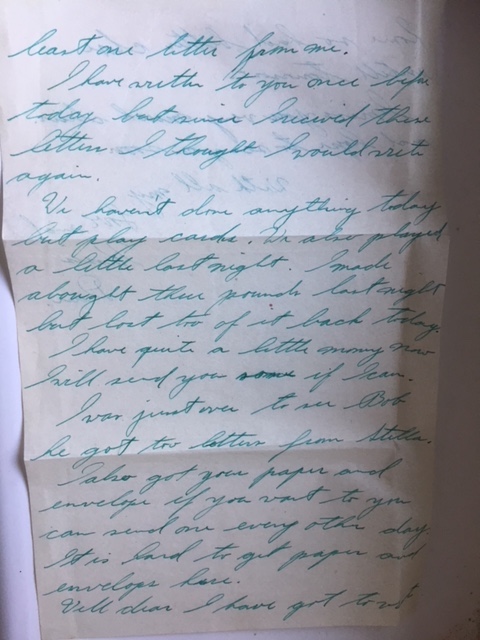 least one letter from me.
I have written to you once before
today but since I received these
letters I thought I would write
again.
We havent done anything today
but play cards. We also played
a little last night. I made
abought three pounds last night
but lost two of it back today.
I have quite a little money now
I will send you some if I can.
I was just over to see Bob
he got two letters from Stella.
I also got your paper and
envelope if you want to you
can send one every other day
It is hard to get paper and
envelops here.
Well dear I have got to